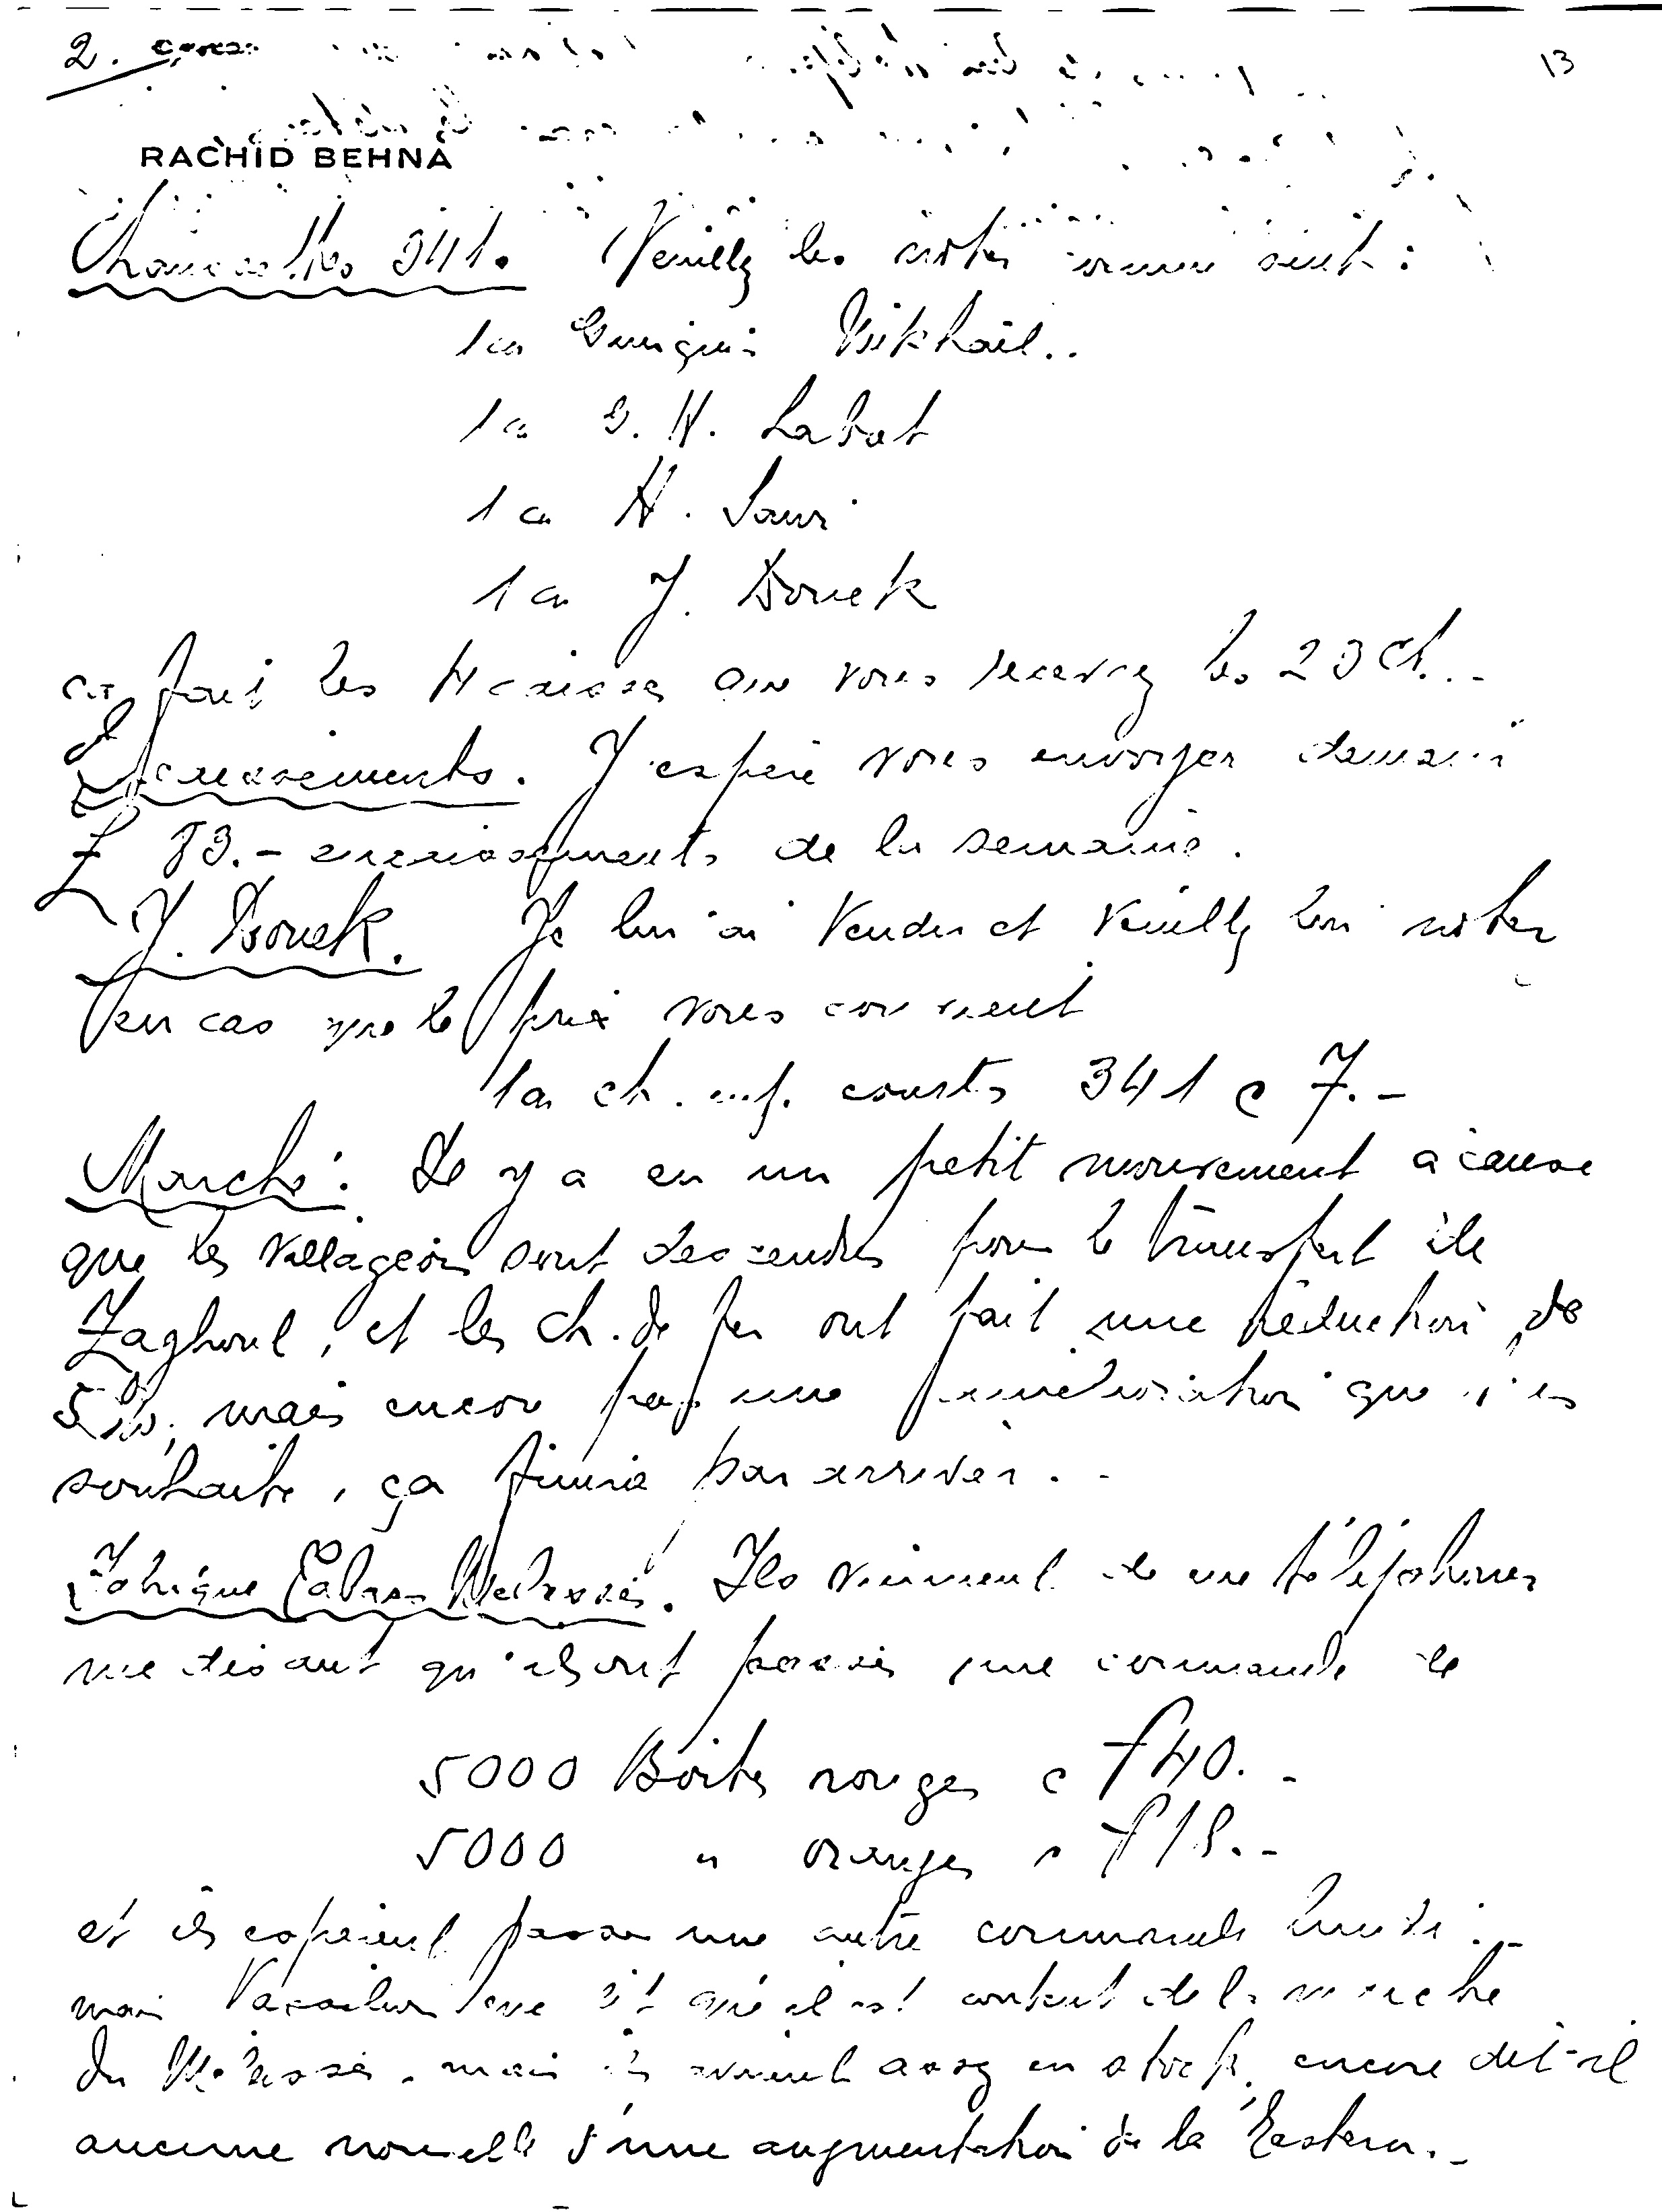 2.
13
RACHID BEHNA
Chaussettes 341. Veuillez les noter comme suit :
1 cs Guirguis Mikhail..
1 cs G. H. Labat
1 cs H. Sour
1 cs J. Douek
ce fait les 4 caisses que vous recevrez les 23 Ch..-
Encaissements. J'espère vous envoyer demain
£ 83.- encaissements de la semaine.
J. Douek. Je lui ai vendu et veuillez lui noter
en cas que le prix vous convient
1 cs ch. courtes 341 a 7.-
Marché : Il y a eu un petit mouvement à cause
que les villageois sont descendus pour le transfert de
Zaghoul, et les ch. de fer ont fait une réduction de
5 mais encore pas une amélioration que j'en
souhaite, ça finira par arriver.-
Fabrique. Ils viennent de me téléphoner
me disant qu'ils ont passé une commande de
5000 Boites rouges a £ 40.-
5000 " oranges a £ 18.-
et ils espèrent passer une autre commande lundi.-
mais me dit qu'il est content de la marche
du mais ils avaient assez en stock, encore dit-il
aucune nouvelle d'une augmentation de la Eastern.-